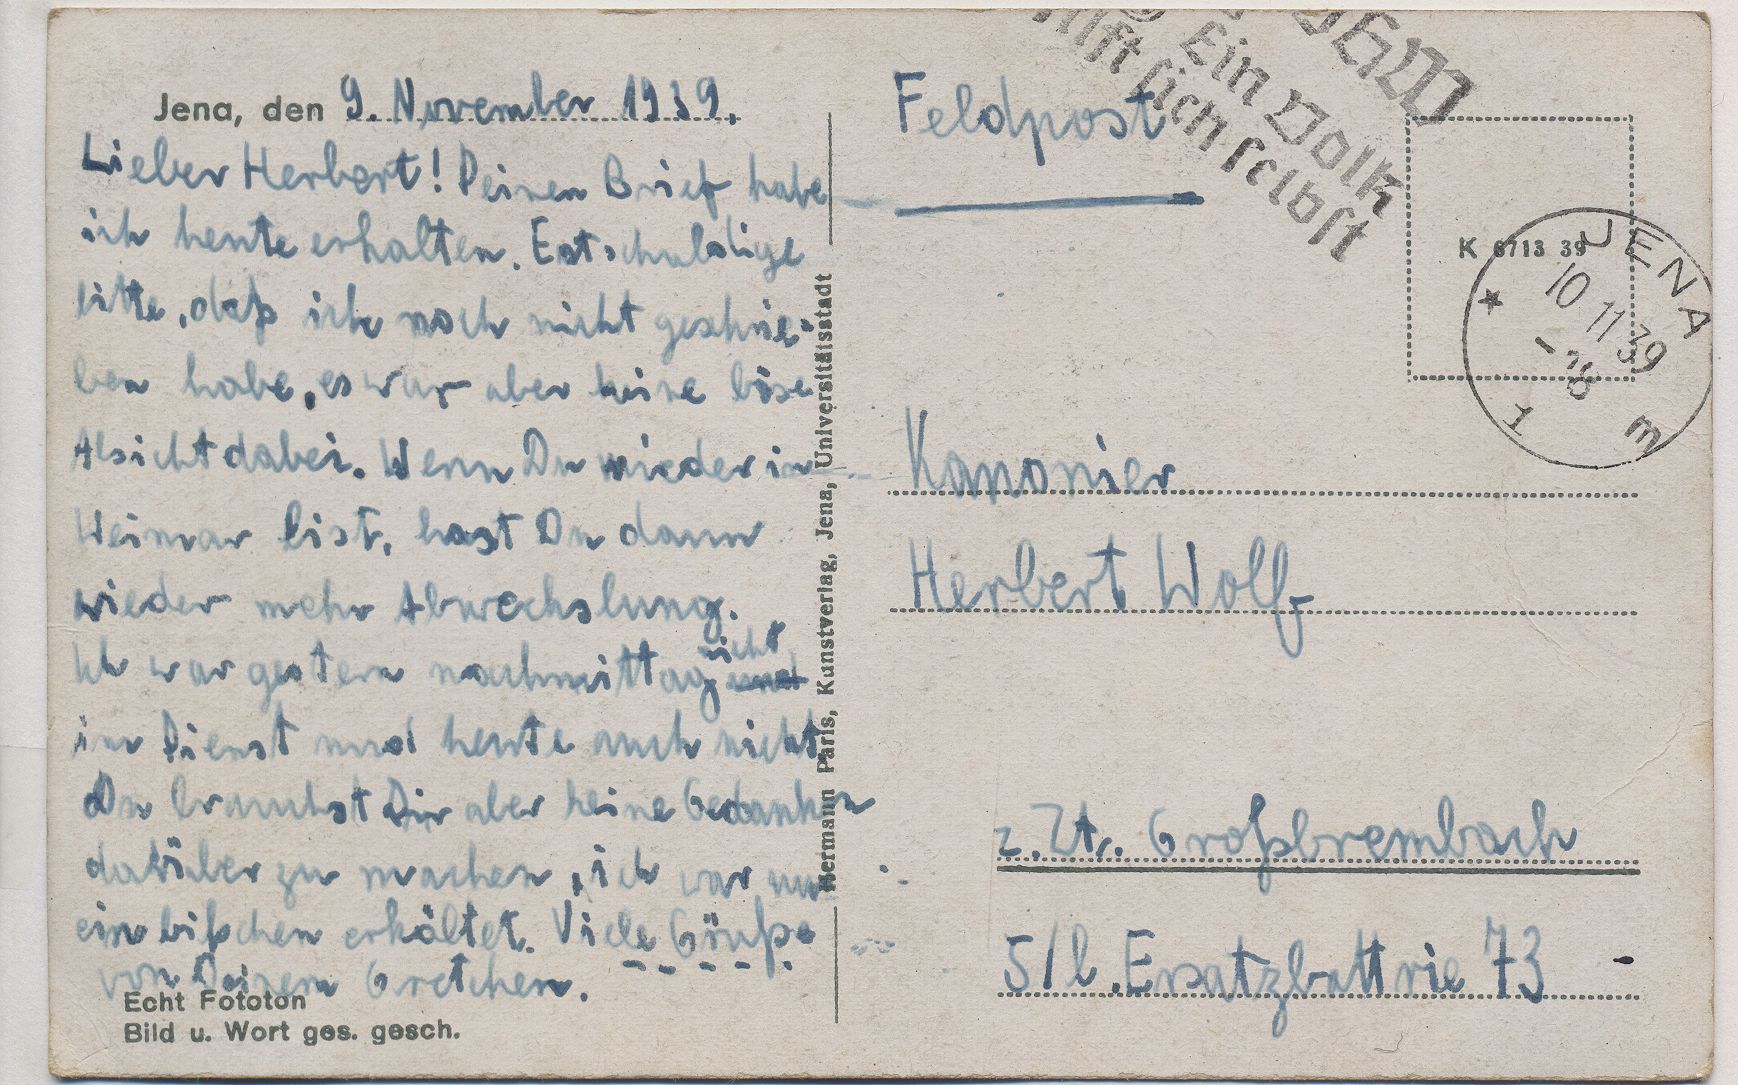 Jena, den 9. November 1939.
Lieber Herbert! Deinen Brief habe
ich heute erhalten. Entschuldige
bitte, daß ich noch nicht geschrie-
ben habe, es war aber keine böse
Absicht dabei. Wenn Du wieder in
Weimar bist, hast Du dann
wieder mehr Abwechslung.
Ich war gestern nachmittag nicht
im Dienst und heute auch nicht.
Du brauchst Dir aber keine Gedanken
darüber zu machen, ich war nur
ein bißchen erkältet. Viele Grüße
von Deinem Gretchen.
Echt Fototon
Bild u. Wort ges. gesch.
Hermann Paris, Kunstverlag, Jena, Universitätsstadt
Ein Volk
hilft sich selbst
Feldpost
K 6713 39
JENA
10 11 39
1 m
Kanonier
Herbert Wolf
z. Zt. Großbrembach
5/l. Ersatzbattrie 73